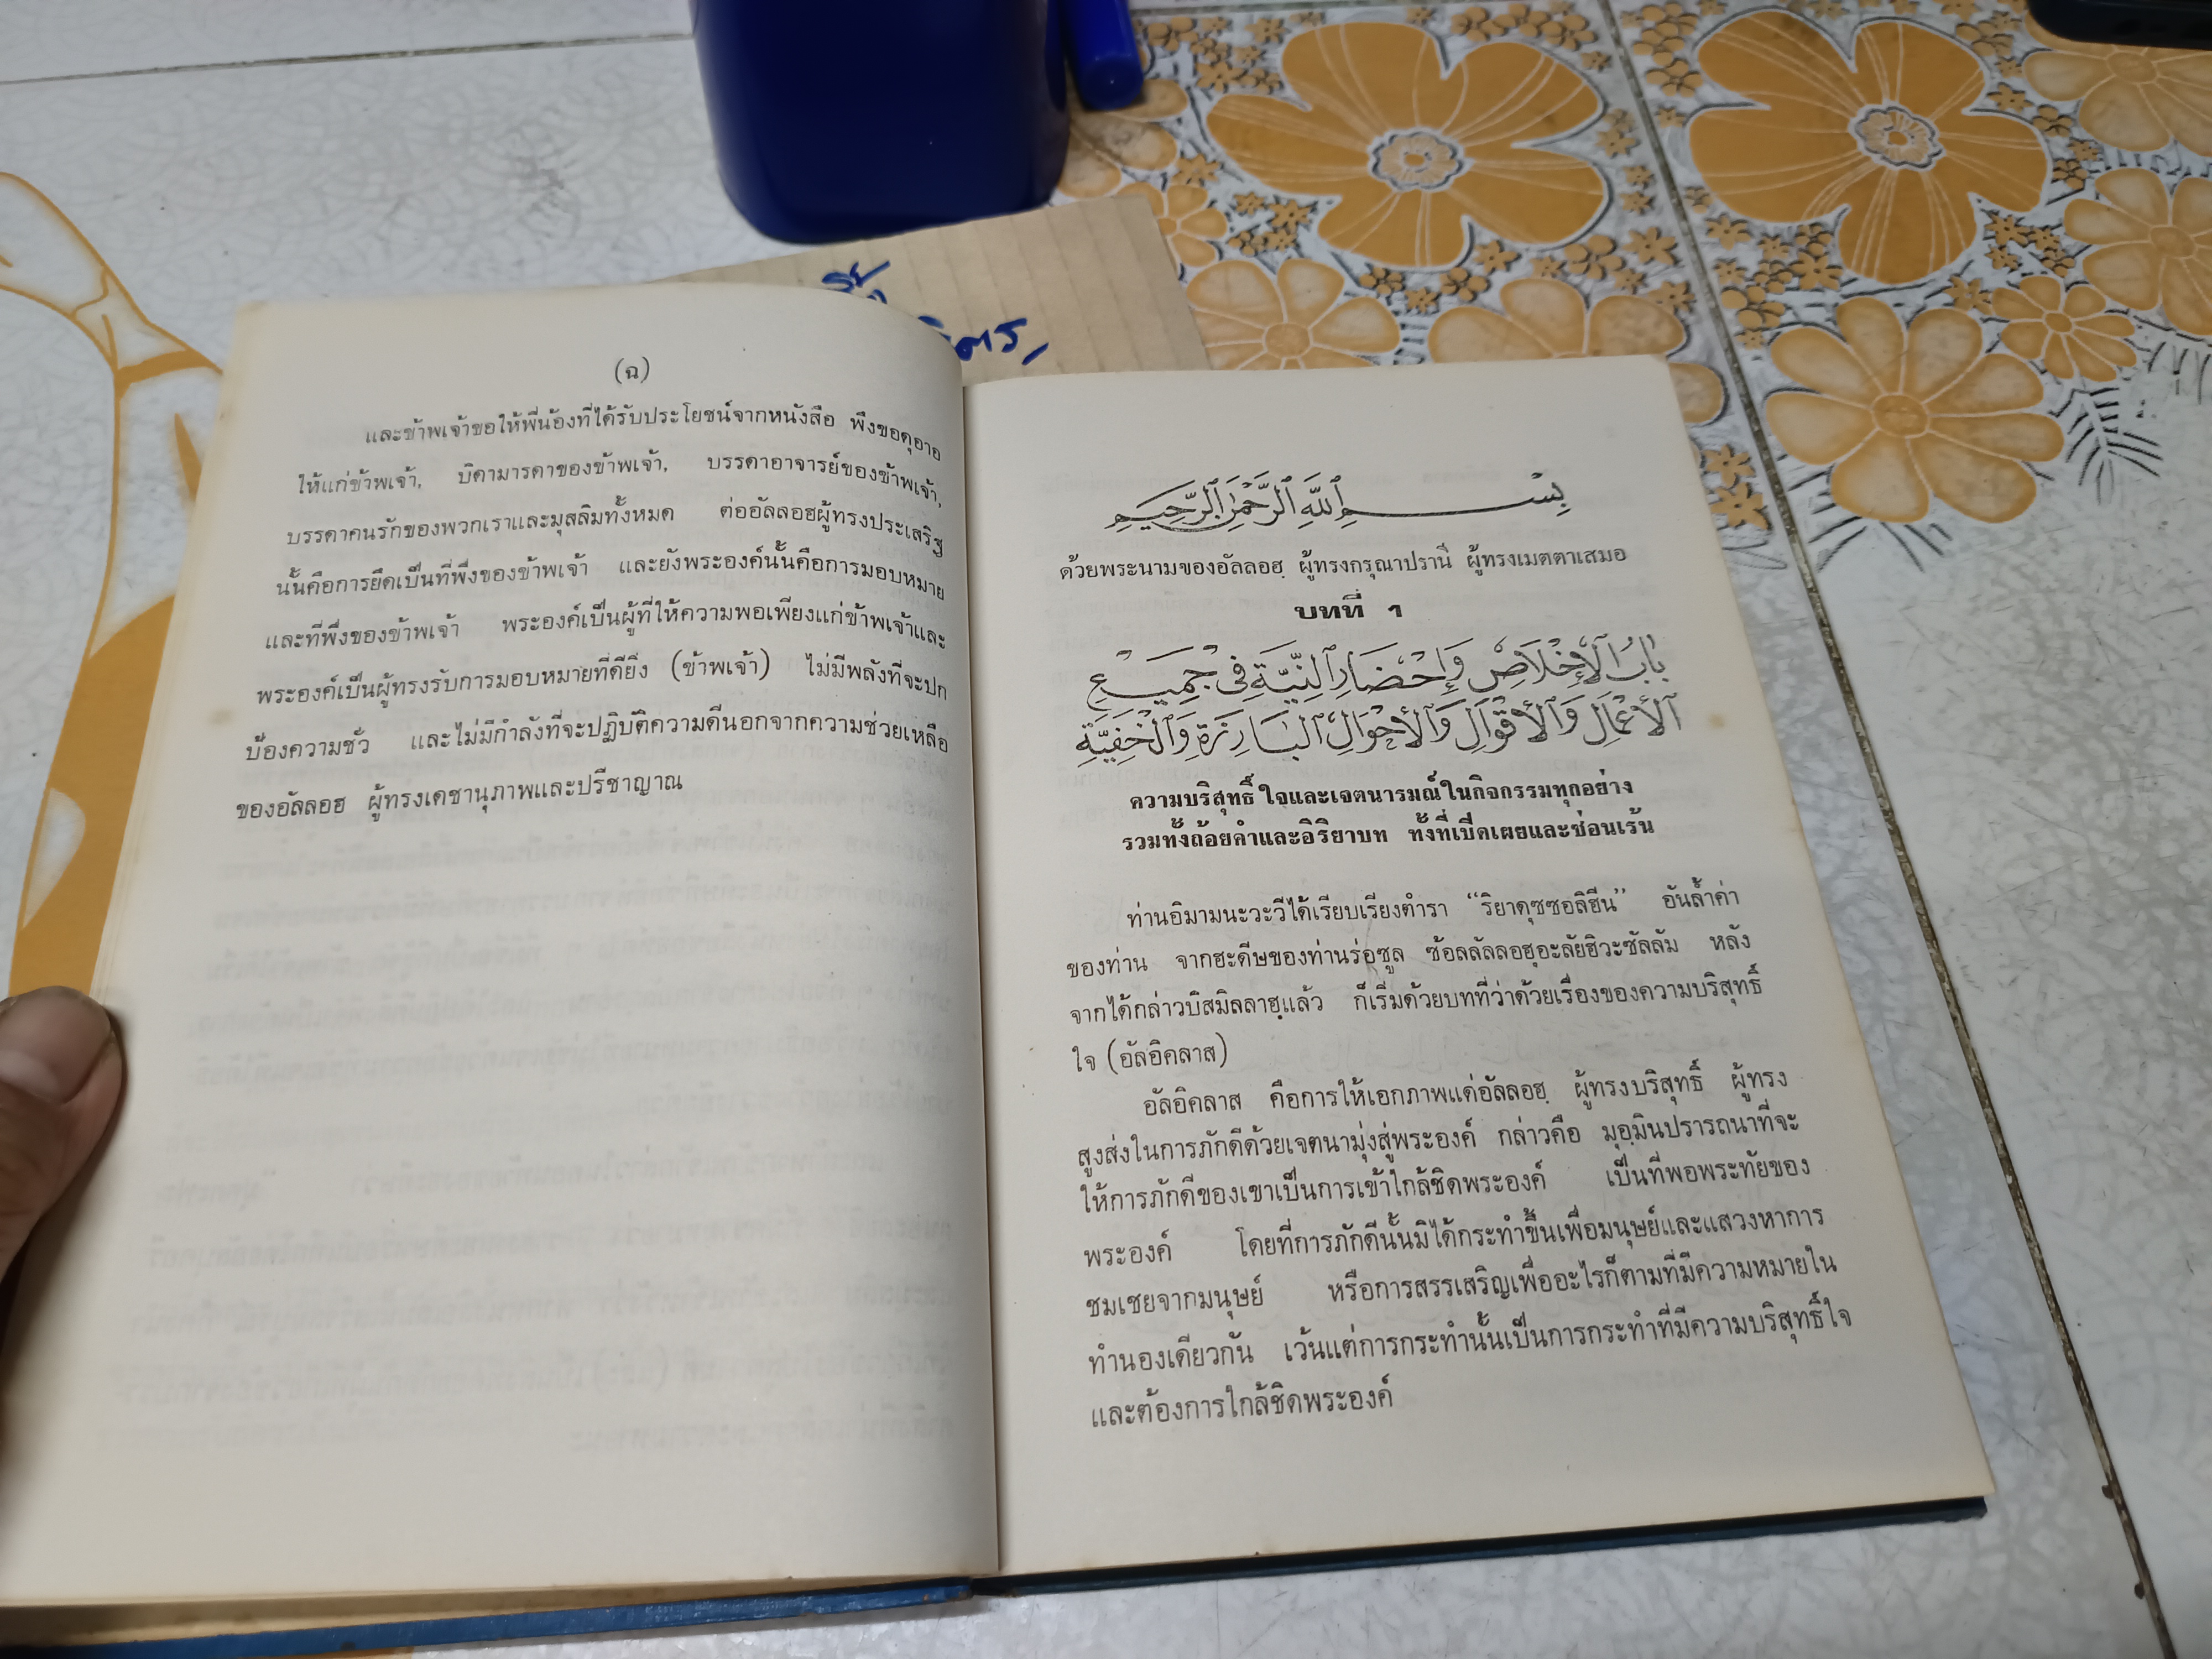 ตร,
(ฉ)
และข้าพเจ้าขอให้พี่น้องที่ได้รับประโยชน์จากหนังสือ พึงขอดุอาอ
ให้แก่ข้าพเจ้า, บิดามารดาของข้าพเจ้า, บรรดาอาจารย์ของข้าพเจ้า,
บรรดาคนรักของพวกเราและมุสลิมทั้งหมด ต่ออัลลอฮผู้ทรงประเสริฐ
นั้นคือการยึดเป็นที่พึ่งของข้าพเจ้า และยังพระองค์นั้นคือการมอบหมาย
และที่พึ่งของข้าพเจ้า พระองค์เป็นผู้ที่ให้ความพอเพียงแก่ข้าพเจ้าและ
พระองค์เป็นผู้ทรงรับการมอบหมายที่ดียิ่ง (ข้าพเจ้า) ไม่มีพลังที่จะปก
ป้องความชั่ว และไม่มีกำลังที่จะปฏิบัติความดีนอกจากความช่วยเหลือ
ของอัลลอฮ ผู้ทรงเดชานุภาพและปรีชาญาณ
بِسْــــــمِ ٱللَّهِ ٱلرَّحْمَٰنِ ٱلرَّحِيــمِ
ด้วยพระนามของอัลลอฮฺ ผู้ทรงกรุณาปรานี ผู้ทรงเมตตาเสมอ
บทที่ ๑
بَابُ ٱلْإِخْلَاصِ وَإِحْضَارِ ٱلنِّيَّةِ فِى جَمِيــعِ
ٱلْأَعْمَالِ وَٱلْأَقْوَالِ وَٱلْأَحْوَالِ ٱلْبَارِزَةِ وَٱلْخَفِيَّةِ
ความบริสุทธิ์ใจและเจตนารมณ์ในกิจกรรมทุกอย่าง
รวมทั้งถ้อยคำและอิริยาบท ทั้งที่เปิดเผยและซ่อนเร้น
ท่านอิมามนะวะวีได้เรียบเรียงตำรา “ริยาดุซซอลิฮีน” อันล้ำค่า
ของท่าน จากฮะดีษของท่านร่อซูล ซ้อลลัลลอฮุอะลัยฮิวะซัลลัม หลัง
จากได้กล่าวบิสมิลลาฮฺแล้ว ก็เริ่มด้วยบทที่ว่าด้วยเรื่องของความบริสุทธิ์
ใจ (อัลอิคลาส)
อัลอิคลาส คือการให้เอกภาพแด่อัลลอฮฺ ผู้ทรงบริสุทธิ์ ผู้ทรง
สูงส่งในการภักดีด้วยเจตนามุ่งสู่พระองค์ กล่าวคือ มุอฺมินปรารถนาที่จะ
ให้การภักดีของเขาเป็นการเข้าใกล้ชิดพระองค์ เป็นที่พอพระทัยของ
พระองค์ โดยที่การภักดีนั้นมิได้กระทำขึ้นเพื่อมนุษย์และแสวงหาการ
ชมเชยจากมนุษย์ หรือการสรรเสริญเพื่ออะไรก็ตามที่มีความหมายใน
ทำนองเดียวกัน เว้นแต่การกระทำนั้นเป็นการกระทำที่มีความบริสุทธิ์ใจ
และต้องการใกล้ชิดพระองค์